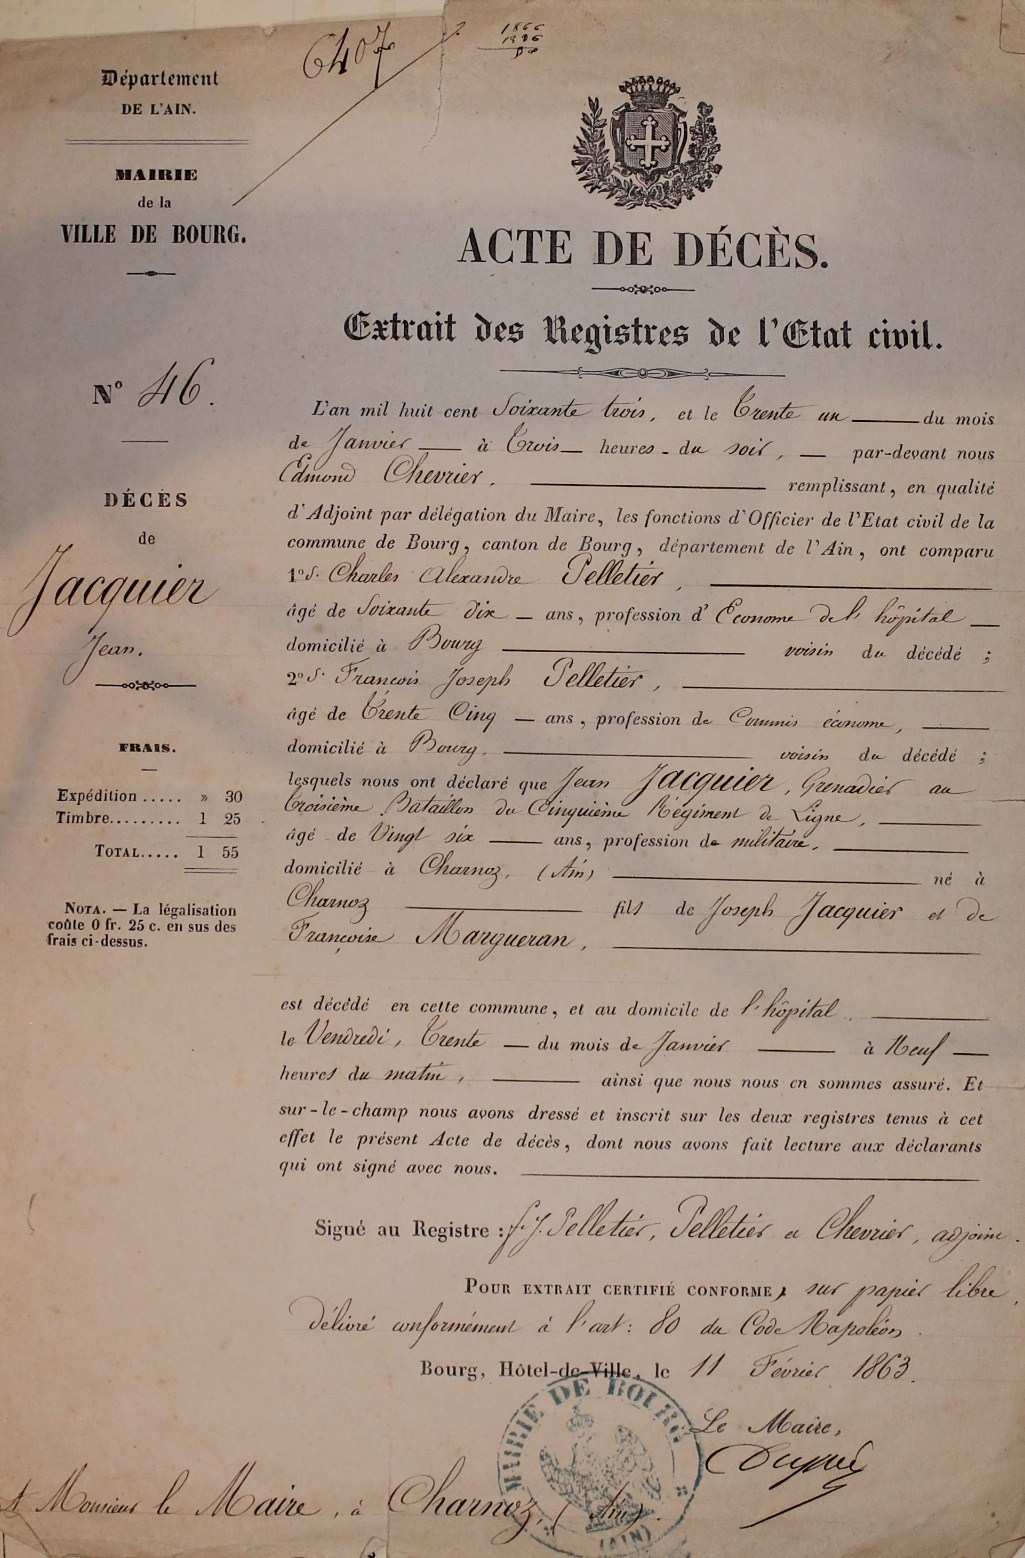 6407
1866
Département
DE L'AIN.
MAIRIE
de la
VILLE DE BOURG.
ACTE DE DÉCÈS.
Extrait des Registres de l'Etat civil.
N° 46.
DÉCÈS
de
Jacquier
Jean.
FRAIS.
Expédition..... » 30
Timbre......... 1 25
TOTAL..... 1 55
NOTA. — La légalisation
coûte 0 fr. 25 c. en sus des
frais ci-dessus.
L'an mil huit cent Soixante trois, et le Trente un — du mois
de Janvier — à Trois — heures - du soir, — par-devant nous
Edmond Chevrier, — remplissant, en qualité
d'Adjoint par délégation du Maire, les fonctions d'Officier de l'Etat civil de la
commune de Bourg, canton de Bourg, département de l'Ain, ont comparu
1° S. Charles Alexandre Pelletier, —
âgé de Soixante dix — ans, profession d'Econome de l'hôpital —
domicilié à Bourg — voisin du décédé ;
2° S. François Joseph Pelletier, —
âgé de Trente Cinq — ans, profession de Commis économe, —
domicilié à Bourg. — voisin du décédé ;
lesquels nous ont déclaré que Jean Jacquier, Grenadier au
troisième Bataillon du Cinquième Régiment de Ligne, —
âgé de Vingt six — ans, profession de militaire, —
domicilié à Charnoz, (Ain) — né à
Charnoz — fils de Joseph Jacquier et de
Françoise Margueran, —
est décédé en cette commune, et au domicile de l'hôpital, —
le Vendredi, Trente — du mois de Janvier — à Neuf —
heures du matin, — ainsi que nous nous en sommes assuré. Et
sur-le-champ nous avons dressé et inscrit sur les deux registres tenus à cet
effet le présent Acte de décès, dont nous avons fait lecture aux déclarants
qui ont signé avec nous. —
Signé au Registre : f. J. Pelletier, Pelletier et Chevrier, adjoint.
POUR EXTRAIT CERTIFIÉ CONFORME, sur papier libre,
délivré conformément à l'art: 80 du Code Napoléon.
Bourg, Hôtel-de-Ville, le 11 Février 1863.
Le Maire,
MAIRIE DE BOURG
(AIN)
A Monsieur le Maire, à Charnoz, (Ain).